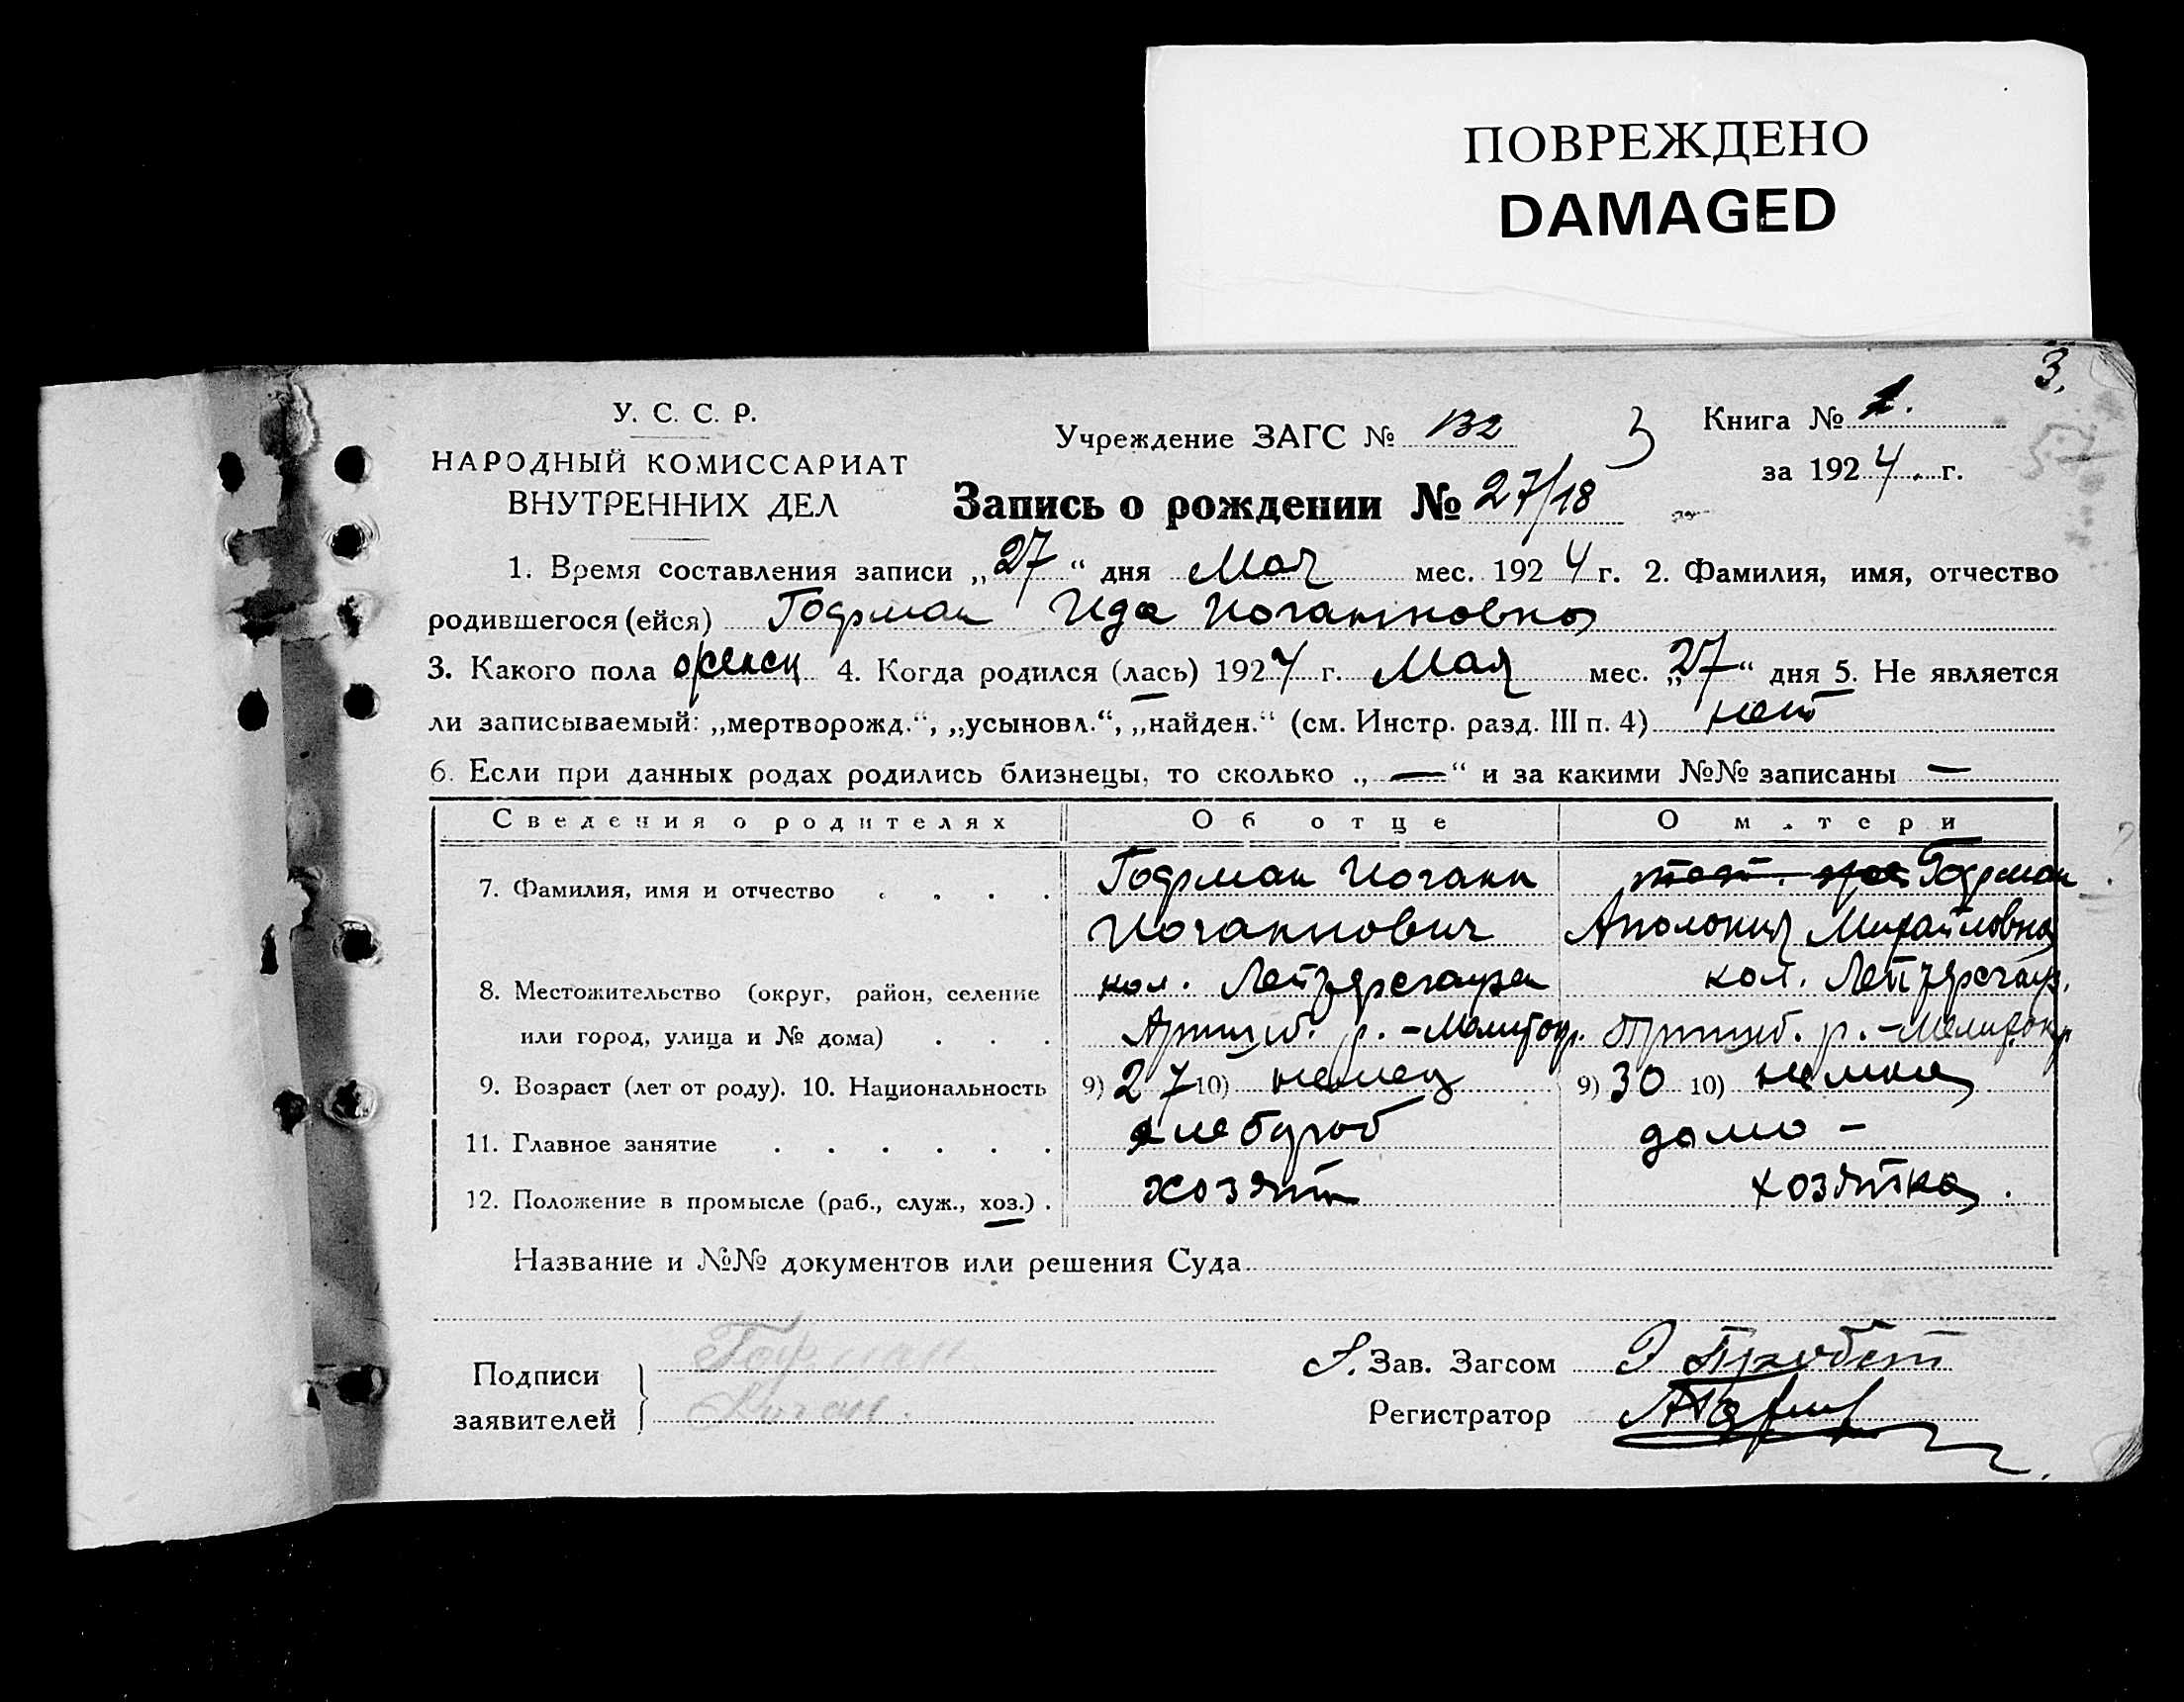 ПОВРЕЖДЕНО
DAMAGED
3.
У. С. С. Р.
НАРОДНЫЙ КОМИССАРИАТ
ВНУТРЕННИХ ДЕЛ
Учреждение ЗАГС № 132
3
Книга № 1.
за 1924 г.
Запись о рождении № 27/18
1. Время составления записи „27“ дня Мая мес. 1924 г. 2. Фамилия, имя, отчество
родившегося (ейся) Гофман Ида Иоганновна
3. Какого пола женск 4. Когда родился (лась) 1924 г. Мая мес. „27“ дня 5. Не является
ли записываемый: „мертворожд.“, „усыновл.“, „найден.“ (см. Инстр. разд. III п. 4) нет
6. Если при данных родах родились близнецы, то сколько „—“ и за какими №№ записаны —
Сведения о родителях Об отце О матери
7. Фамилия, имя и отчество . . . . Гофман Иоганн Гофман
Иоганнович Аполония Михайловна
8. Местожительство (округ, район, селение кол. Лейтерсгаузен кол. Лейтерсгауз.
или город, улица и № дома) . . . Пришиб. р. - Мелитоп. Пришиб. р. - Мелит. окр
9. Возраст (лет от роду). 10. Национальность 9) 27 10) немец 9) 30 10) немка
11. Главное занятие . . . . . . хлебороб домо -
12. Положение в промысле (раб., служ., хоз.) . хозяин хозяйка.
Название и №№ документов или решения Суда
Подписи
заявителей
Гофман
Иоган.
Зав. Загсом
Регистратор